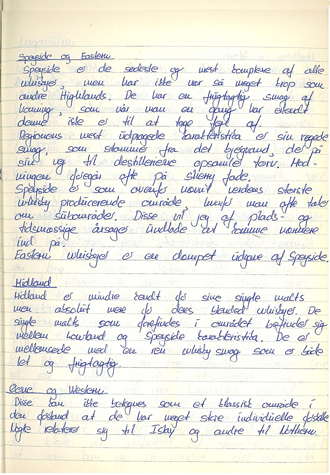 Speyside og Eastern
Speyside er de sødeste og mest komplexe af alle
whiskyer, men har ikke så meget krop som
andre Highlands. De har en frugtagtig smag af
honning, som når man en gang har erkendt
denne ikke er til at tage fejl af.
Regionens mest udprægede karakteristika er sin røgede
smag, som stammer fra det kildevand, der på
sin vej til destillerierne opsamler tørv. Mod-
ningen foregår ofte på sherry fade.
Speyside er som ovenfor nævnt verdens største
whisky producerende område, hvorfor man ofte taler
om subområder. Disse vil jeg af plads- og
tidsmæssige årsager undlade at komme nærmere
ind på.
Eastern whiskyer er en dæmpet udgave af Speyside.
Midland
Midland er mindre kendt for sine single malts
men absolut mere for deres blended whiskyer. De
single malts som forefindes i området befinder sig
mellem Lowland og Speyside karakteristika. De er i
mellemsøde med en ren whisky smag som er både
let og frugtagtig.
Øerne og Western
Disse kan ikke betegnes som et klassisk område i
den forstand at de har meget store individuelle forskelle
Nogle relaterer sig til Islay og andre til Northern.